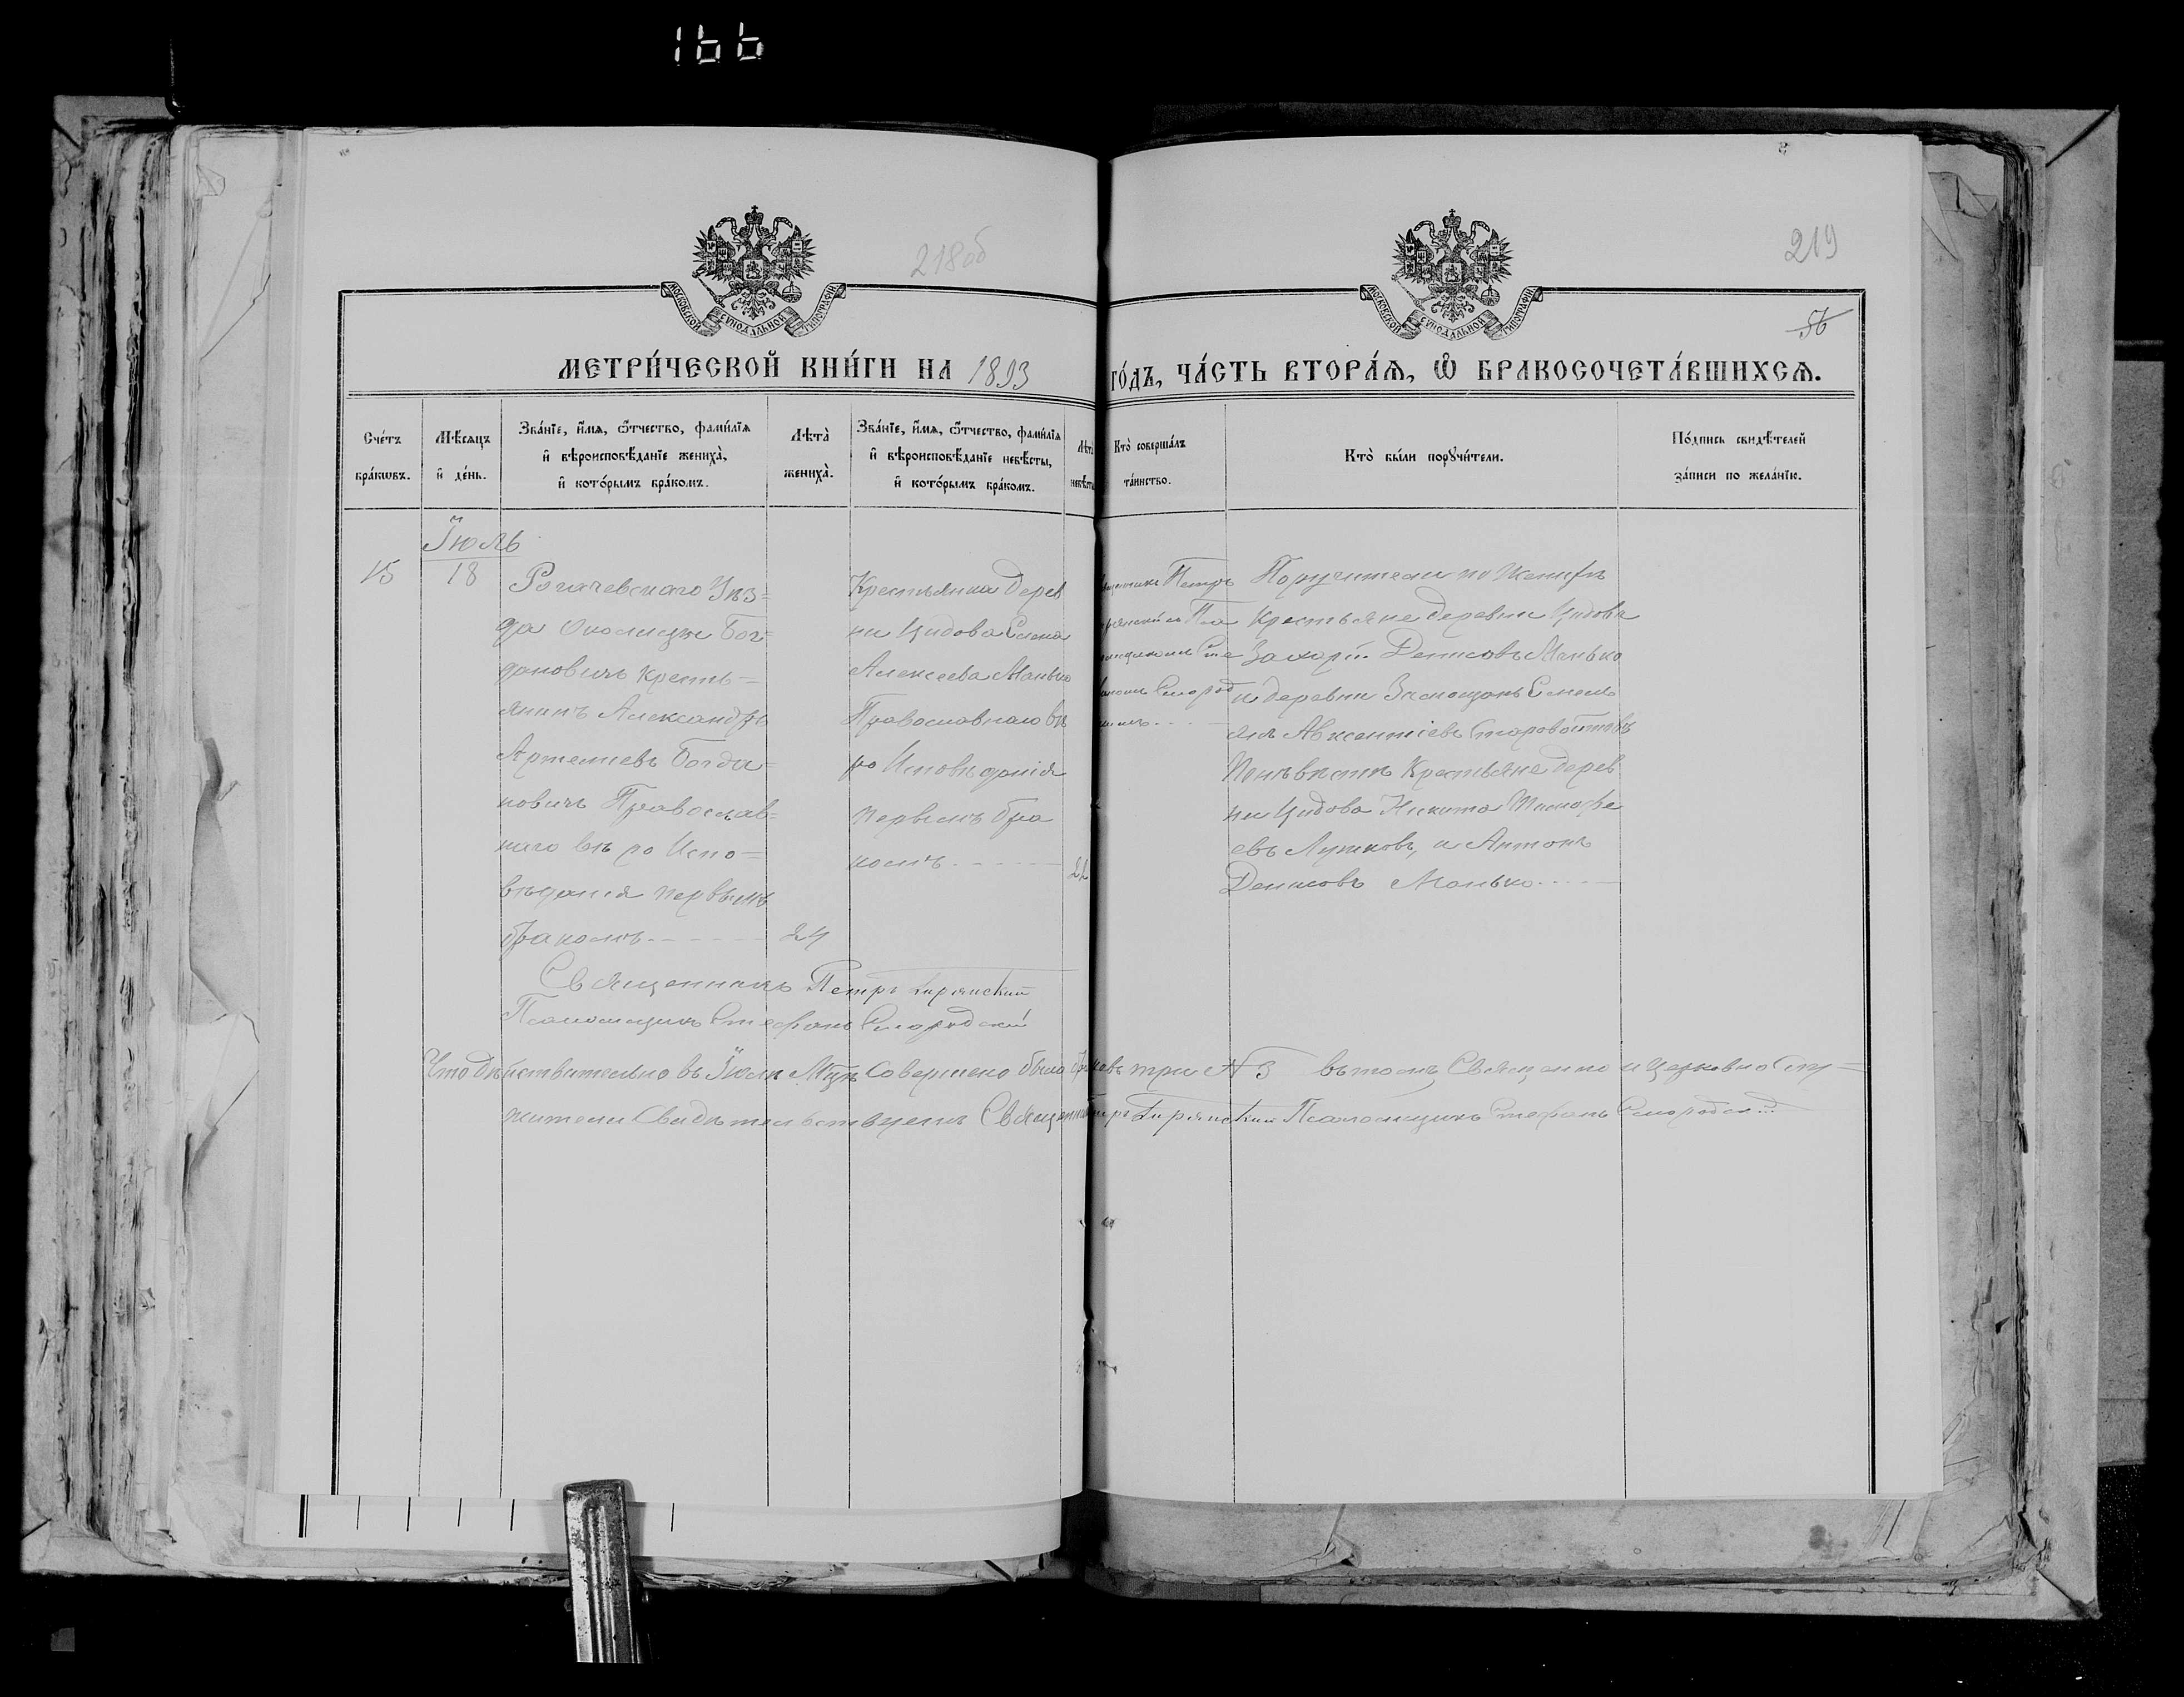 166
218об
219
56
МОСКОВСКОЙ СѴНОДАЛЬНОЙ ТИПОГРАФІИ
МОСКОВСКОЙ СѴНОДАЛЬНОЙ ТИПОГРАФІИ
МЕТРИ́ЧЕСКОЙ КНИ́ГИ НА 1893 ГО́ДЪ, ЧА́СТЬ ВТОРА́Я, Ѿ БРАКОСОЧЕТА́ВШИХСЯ.
Сче́тъ бра́кѡвъ.
Мѣ́сяцъ и де́нь.
Зва́нїе, и́мя, ѻ́тчество, фами́лїя и вѣроисповѣ́данїе жениха̀, и кото́рымъ бра́комъ.
Лѣта̀ жениха̀.
Зва́нїе, и́мя, ѻ́тчество, фами́лїя и вѣроисповѣ́данїе невѣ́сты, и кото́рымъ бра́комъ.
Лѣта̀ невѣ́сты
Кто̀ соверша́лъ та́инство.
Кто̀ бы́ли порꙋчи́тели.
По́дпись свидѣ́телей за́писи по жела́нїю.
Іюль
15
18
Рогачевскаго Уѣз=
да Околицы Бог=
дановичъ кресть=
янинъ Александръ
Артемiевъ Богда=
новичъ Православ=
наго вѣро Испо=
вѣданія первымъ
бракомъ
24
Крестьянка дерев
ни Цидова Елена
Алексеева Манько
Православнаго вѣ
ро Исповѣданія
первымъ бра
комъ
22
Петръ
Поручители по Женихѣ
крестьяне деревни Цидова
Захарій Денисовъ Манько
и деревни Емель
янъ Авксентіевъ Старовойтовъ
По невѣстѣ крестьяне дерев
ни Цидова Никита Тимофе
евъ и Антонъ
Денисовъ Манько
Священникъ Петръ
Псаломщикъ Стефанъ Смородскій
Что дѣйствительно въ Іюлѣ Мцѣ Совершено было браковъ три № 3 въ томъ Священно и церковно слу=
жители Свидѣтельствуемъ Священникъ Петръ Псаломщикъ Стефанъ Смородскій